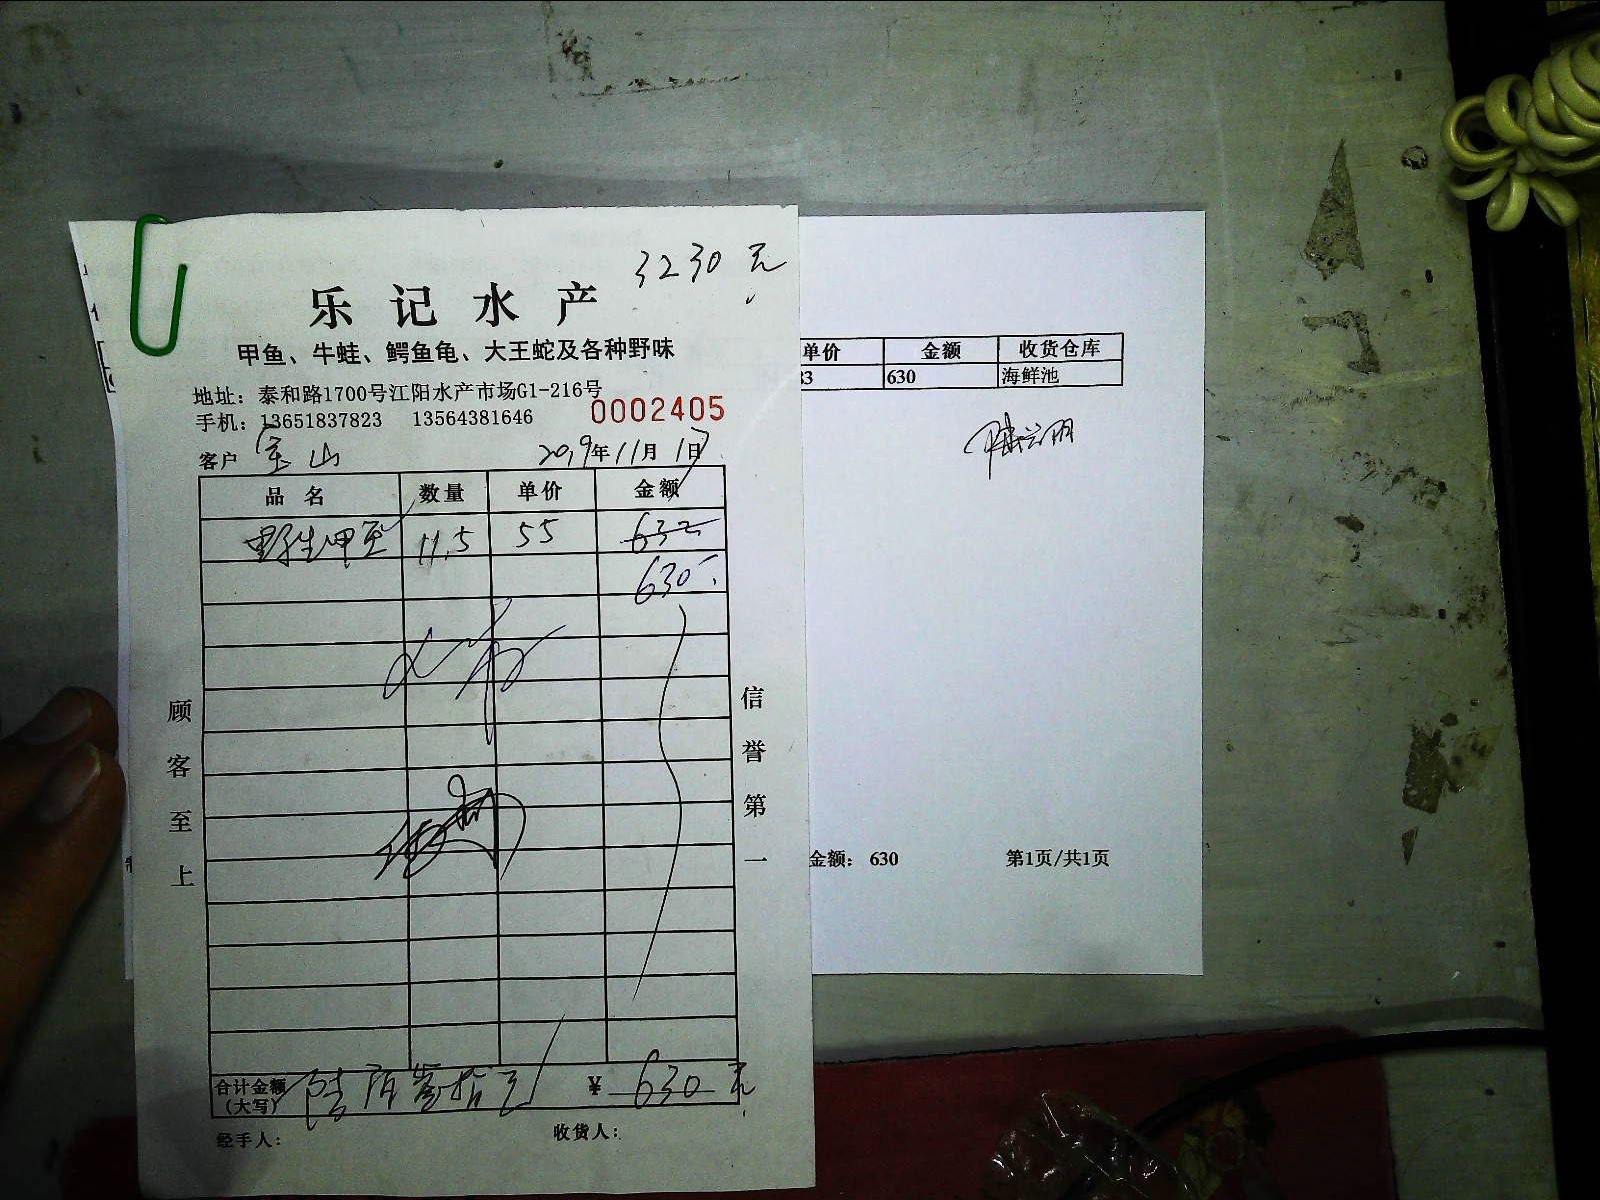 3230元
乐记水产
甲鱼、牛蛙、鳄鱼龟、大王蛇及各种野味
地址：泰和路1700号江阳水产市场G1-216号
手机：13651837823 13564381646
0002405
客户 宝山 2019年11月17日
品名 数量 单价 金额
野生甲鱼 11.5 55 632
630
顾客至上
信誉第一
合计金额（大写） 陆佰叁拾元 ¥ 630元
经手人： 收货人：
单价 金额 收货仓库
83 630 海鲜池
金额： 630 第1页/共1页